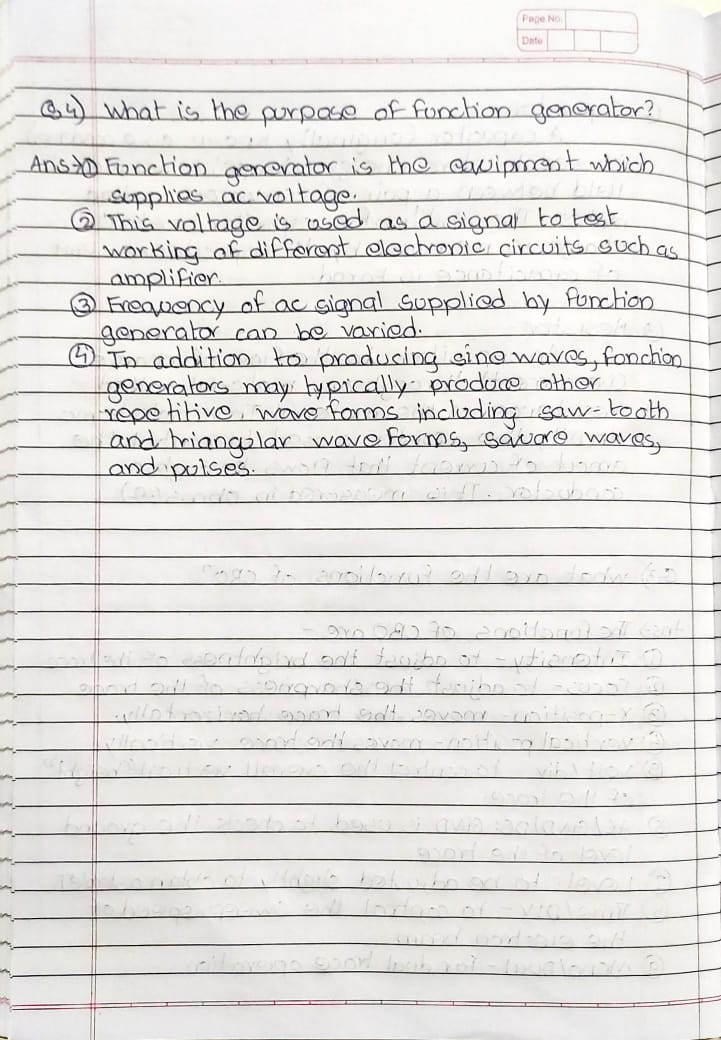 Page No.
Date
Q4) What is the purpose of function generator?
Ans→① Function generator is the equipment which
supplies ac voltage.
② This voltage is used as a signal to test
working of different electronic circuits such as
amplifier.
③ Frequency of ac signal supplied by function
generator can be varied.
④ In addition to producing sine waves, function
generators may typically produce other
repetitive wave forms including saw-tooth
and triangular wave forms, square waves,
and pulses.